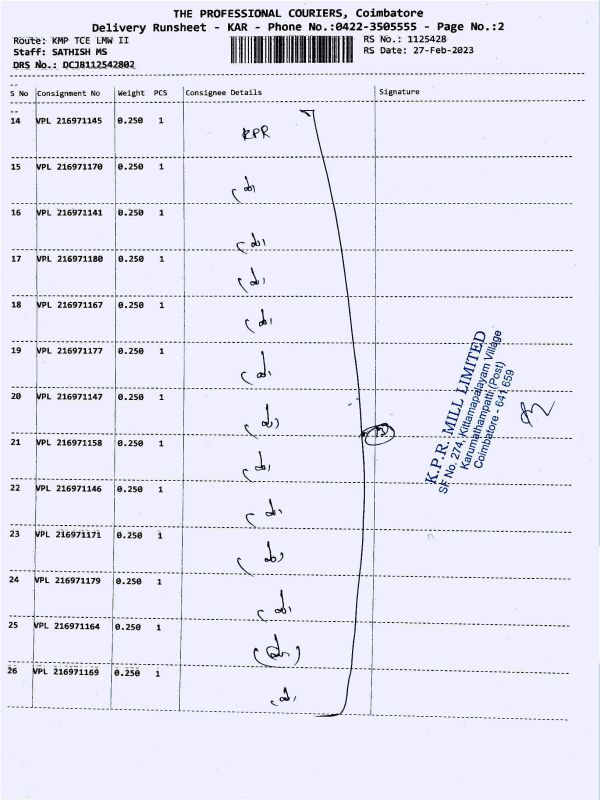 THE PROFESSIONAL COURIERS, Coimbatore
Delivery Runsheet - KAR - Phone No.:0422-3505555 - Page No.:2
Route: KMP TCE LMW II
RS No.: 1125428
Staff: SATHISH MS
RS Date: 27-Feb-2023
DRS No.: DCJB112542802
--
S No Consignment No Weight PCS Consignee Details Signature
--
14 VPL 216971145 0.250 1 KPR
15 VPL 216971170 0.250 1
16 VPL 216971141 0.250 1
17 VPL 216971180 0.250 1
18 VPL 216971167 0.250 1
19 VPL 216971177 0.250 1
20 VPL 216971147 0.250 1
21 VPL 216971158 0.250 1
22 VPL 216971146 0.250 1
23 VPL 216971171 0.250 1
24 VPL 216971179 0.250 1
25 VPL 216971164 0.250 1
26 VPL 216971169 0.250 1
K.P.R. MILL LIMITED
SF No. 274, Kittamapalayam Village
Karumathampatti (Post)
Coimbatore - 641 659